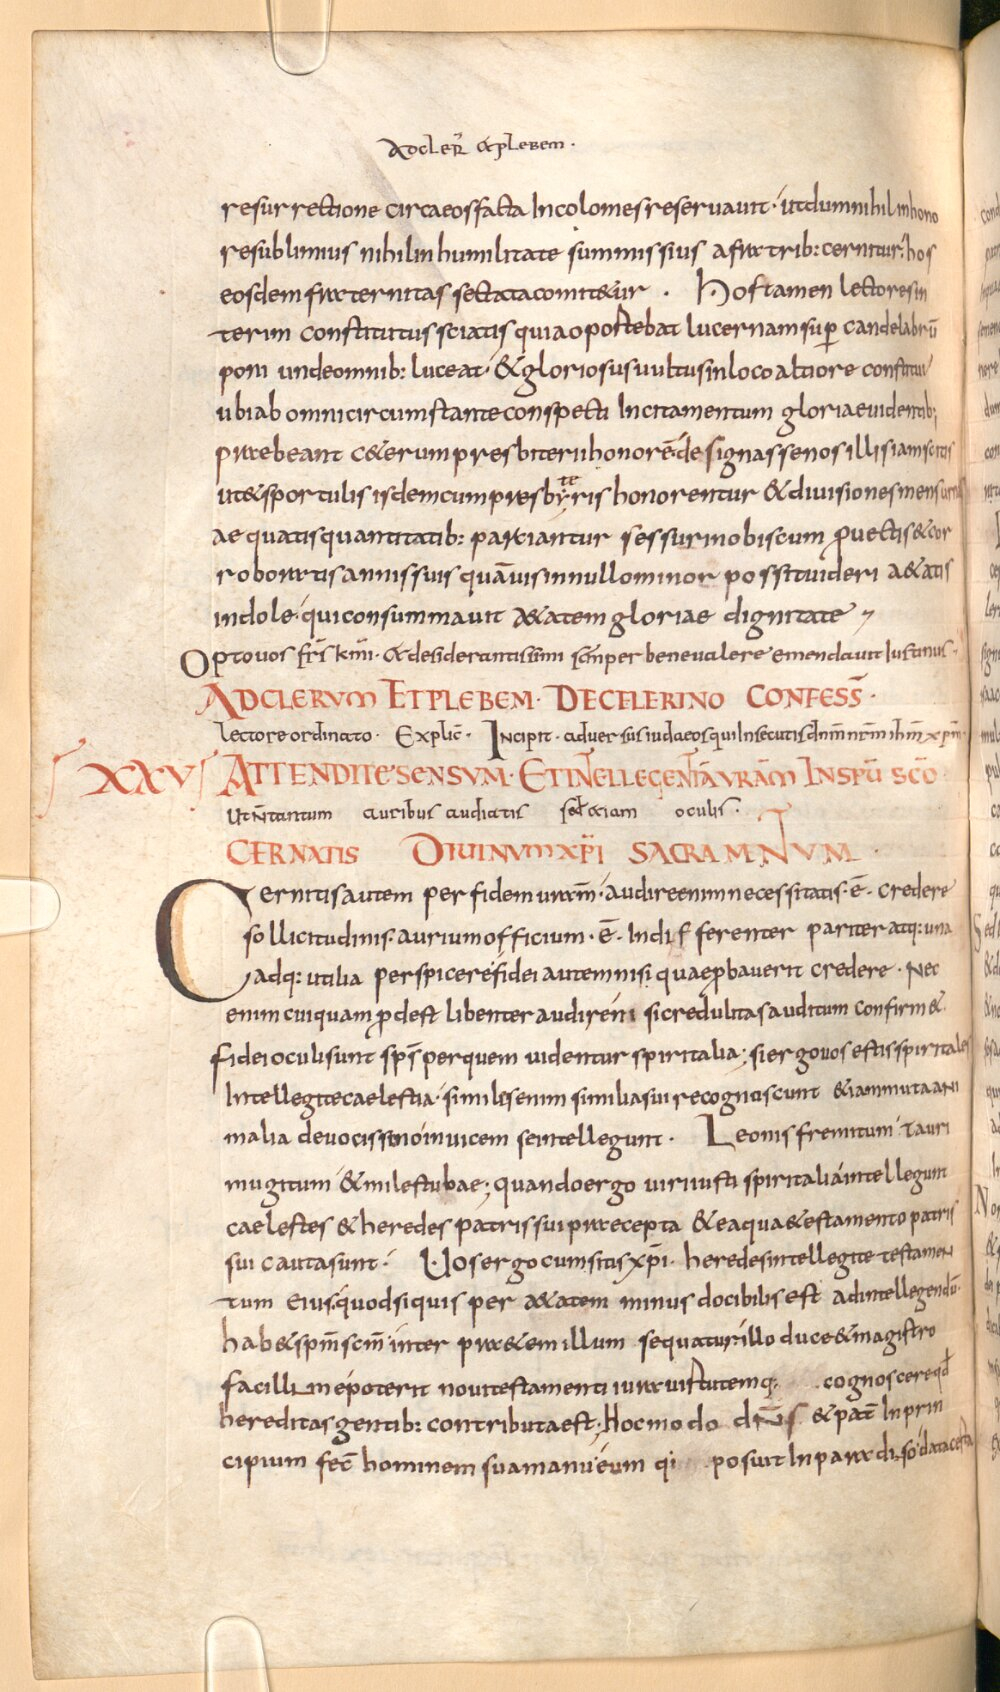 Adcler̄ &plebem·
resurrectione circaeosfacta Incolomesreseruauit· utdumnihilinhono
resublimius nihilinhumilitate summissius afratrib: cernitur· hos
eosdemfraternitas sectatacomit&ur· Hostamen lectoresin
terim constitutussciatisquiaoportebat lucernamsup̄ candelabrū
poni undeomnib: luceat· &gloriosusuultusinlocoaltiore constitui
ubiab omnicircumstanteconspecti Incitamentum gloriaeuidentib;
praebeant c&erumpresbiteriihonorē· designassenosillisiamscitis
ut&sportulis isdemcumpresbyteris honorentur &diuisionesmensurnas
aequatisquantitatib: partiantur sessurinobiscum ꝓuectis&cor
roboratisannissuis quāuisinnullominor possituideri a&atis
indole· quiconsummauit a&atemgloriae dignitate
Optouos frs̄ kmi· &desiderantissimi semper beneualere emendauit Iustinus·
ADCLERUM ETPLEBEM· DECELERINO CONFESS̄·
lectoreordinato· Explic̄· Incipit· aduersusiudaeosquiInsecutisdnm̄ nrm̄ ihm̄ xpm̄·
XXV ATTENDITESENSUM· ETINTELLEGENTIAURAM INSPU SCO
utNtantum auribus audiatis sed&iam oculis·
CERNATIS DIUINUM XPI SACRAMNTUM·
Cernitisautem perfidemuram̄· audireenimnecessitatis·ē· credere
sollicitudinis· auriumofficium·ē· Indifferenter pariter atq: una
adq: utilia perspicere· fideiautemnisi quaeꝓbauerit credere· Nec
enim cuiquamꝓdest libenteraudire· sicredulitasauditum confirm&·
fideioculisunt sps̄ perquem uidentur spiritalia; siergouosestisspiritales
Intellegitecaelestia· similisenim similiasuirecognoscunt &iammutaani
malia deuocissonoinuicem seintellegunt· Leonisfremitum tauri
mugitum &milestubae; quandoergo uiriiusti spiritaliaintellegunt
caelestes &heredes patrissuipraecepta &eaquae&estamento patris
sui cautasunt· Uosergocumsitisxp̄i· heredesintellegite testamen
tum eius· quodsiquis per a&atem minus docibilisest adintellegendū
hab&spm̄scm̄· inter pra&em illum sequatur· illo duce&magistro
facillimepoterit nouitestamenti iurauirtutemq; cognoscereqd̄
hereditasgentib: contributaest· hocmodo dn̄s &pat̄ Inprin
cipium fec̄ hominem suamanu· eum qi posuit Inparadiso· datacesta